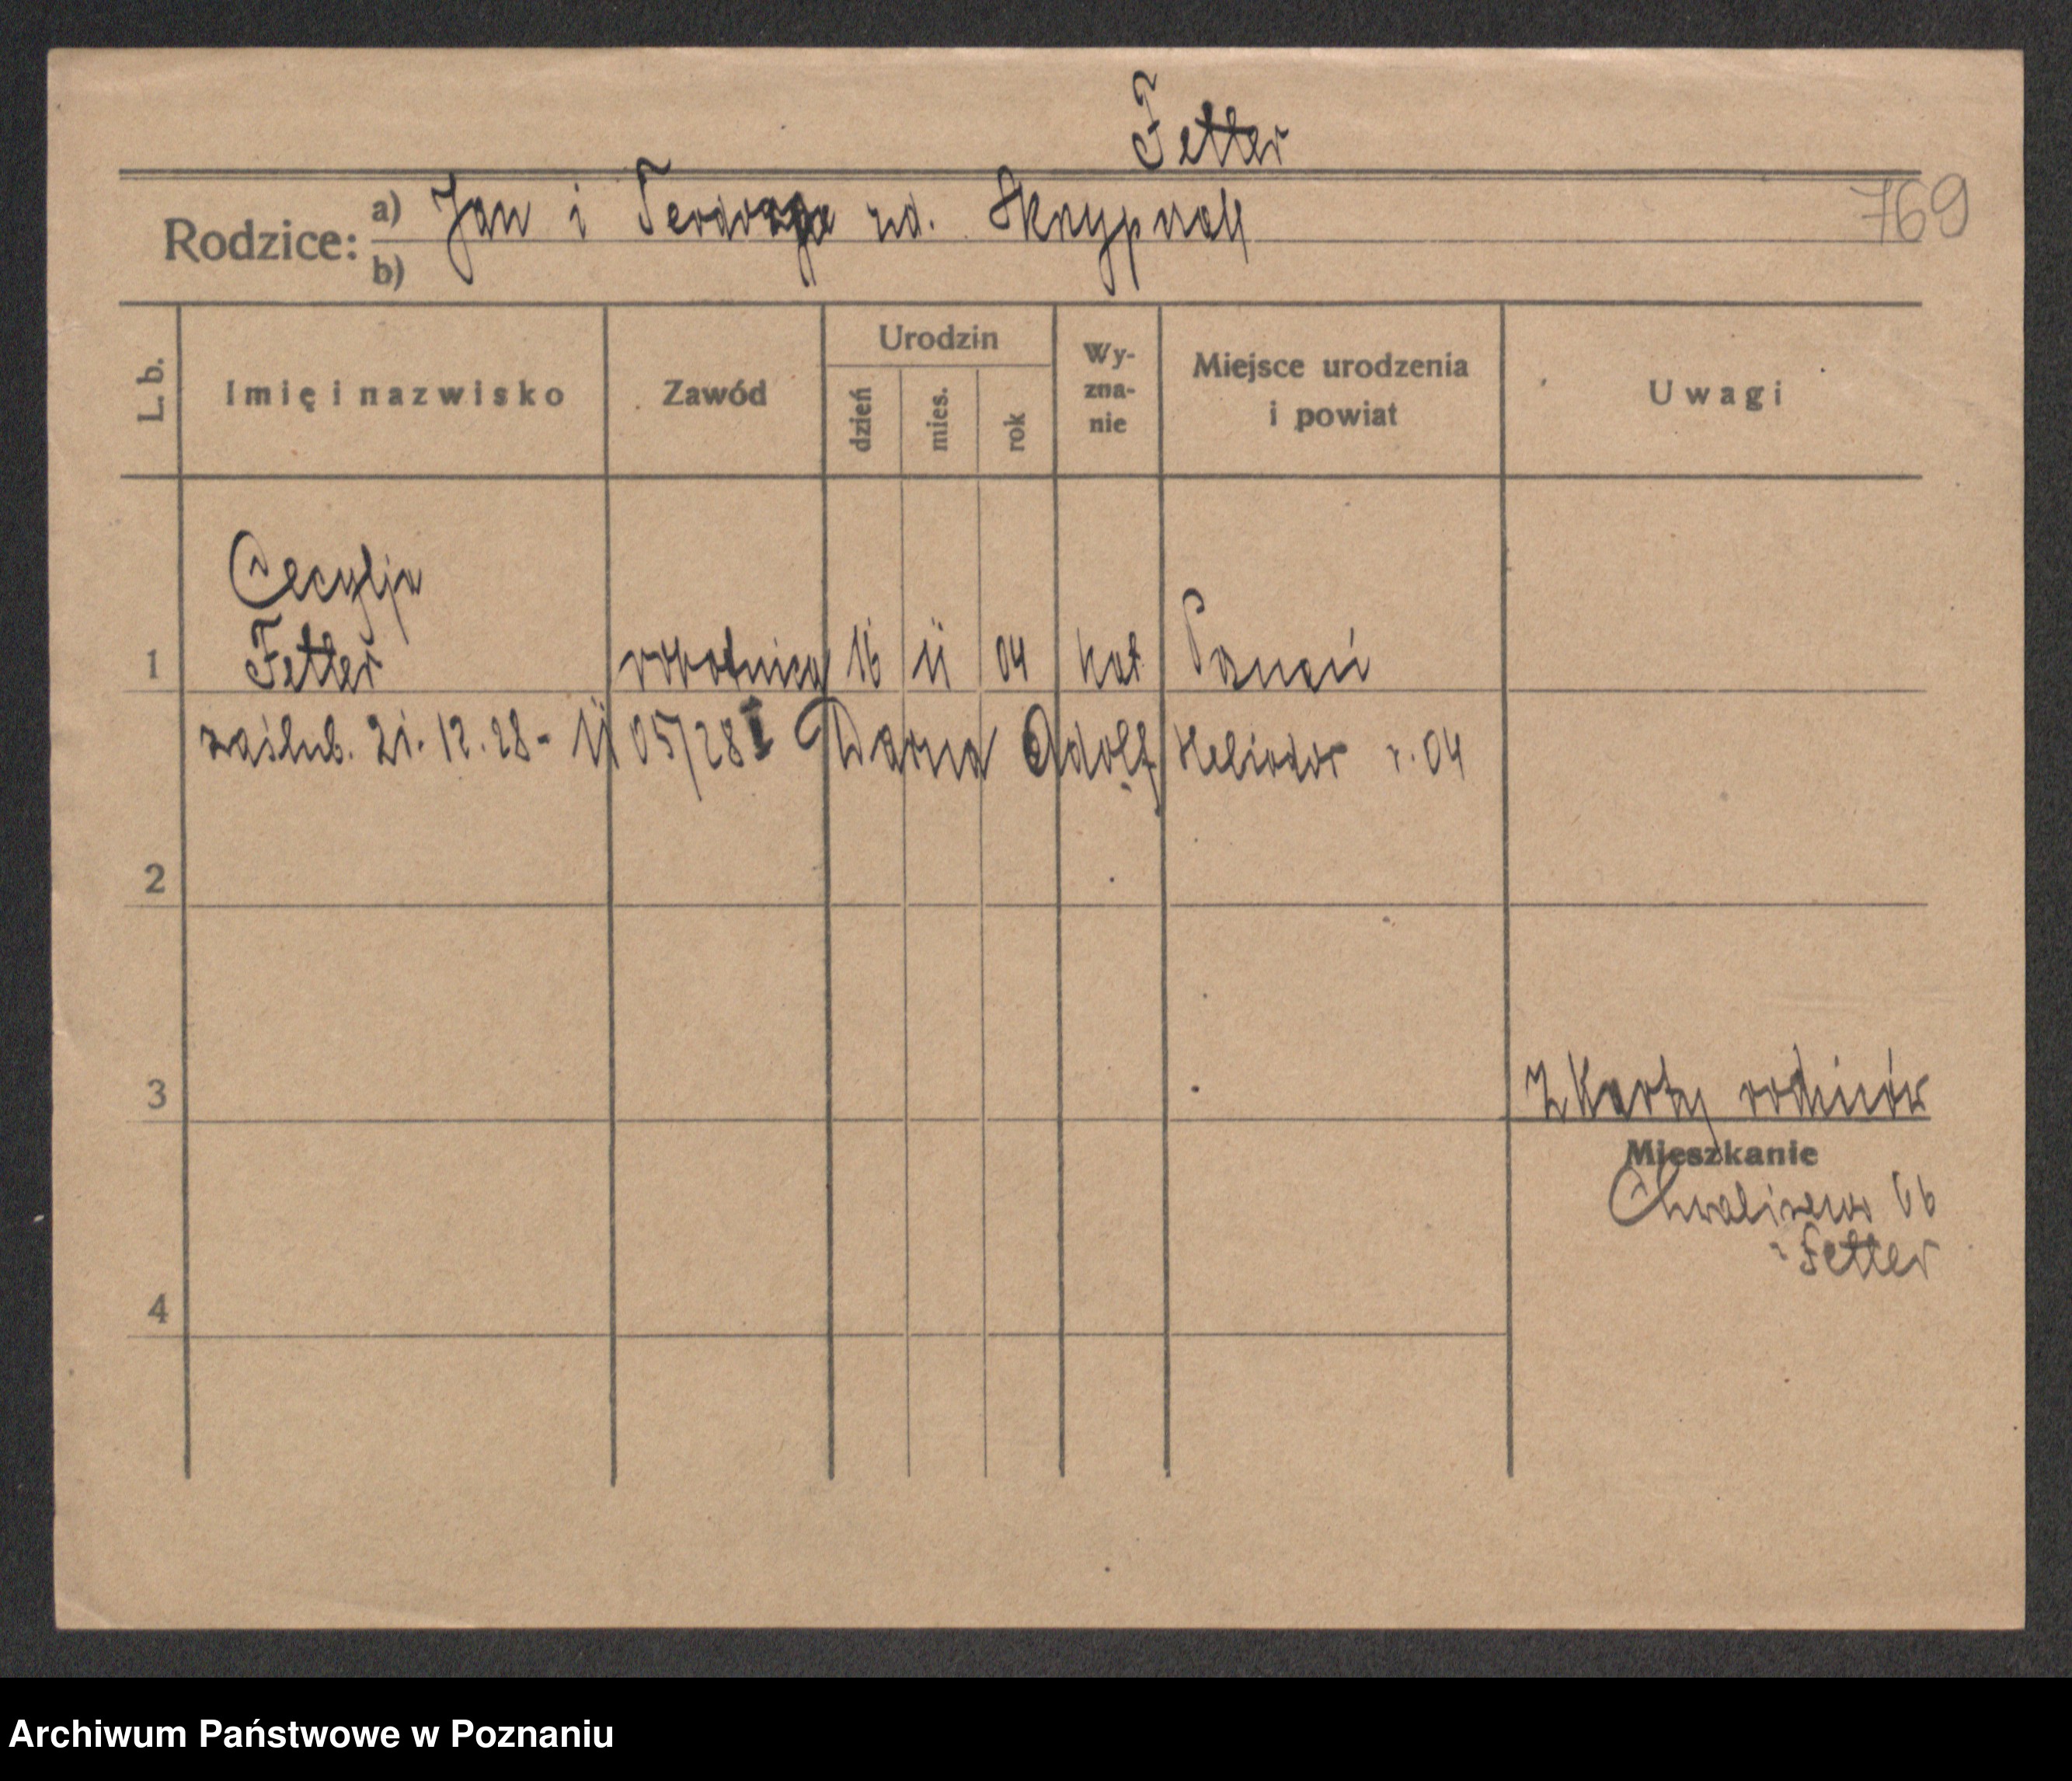 Fetter
769
Rodzice: a) Jan i Teodozja zd. Skrzypczak
b)
L. b. Imię i nazwisko Zawód Urodzin dzień mies. rok Wy-zna-nie Miejsce urodzenia i powiat Uwagi
Cecylja
1 Fetter robotnica 16 11 04 kat Poznań
zaślub. 21. 12. 28 - 1105/28 I Adolf Heliodor r. 04
2
3 Z Karty rodziców
Mieszkanie
Chwaliszewo 66
Fetter
4
Archiwum Państwowe w Poznaniu